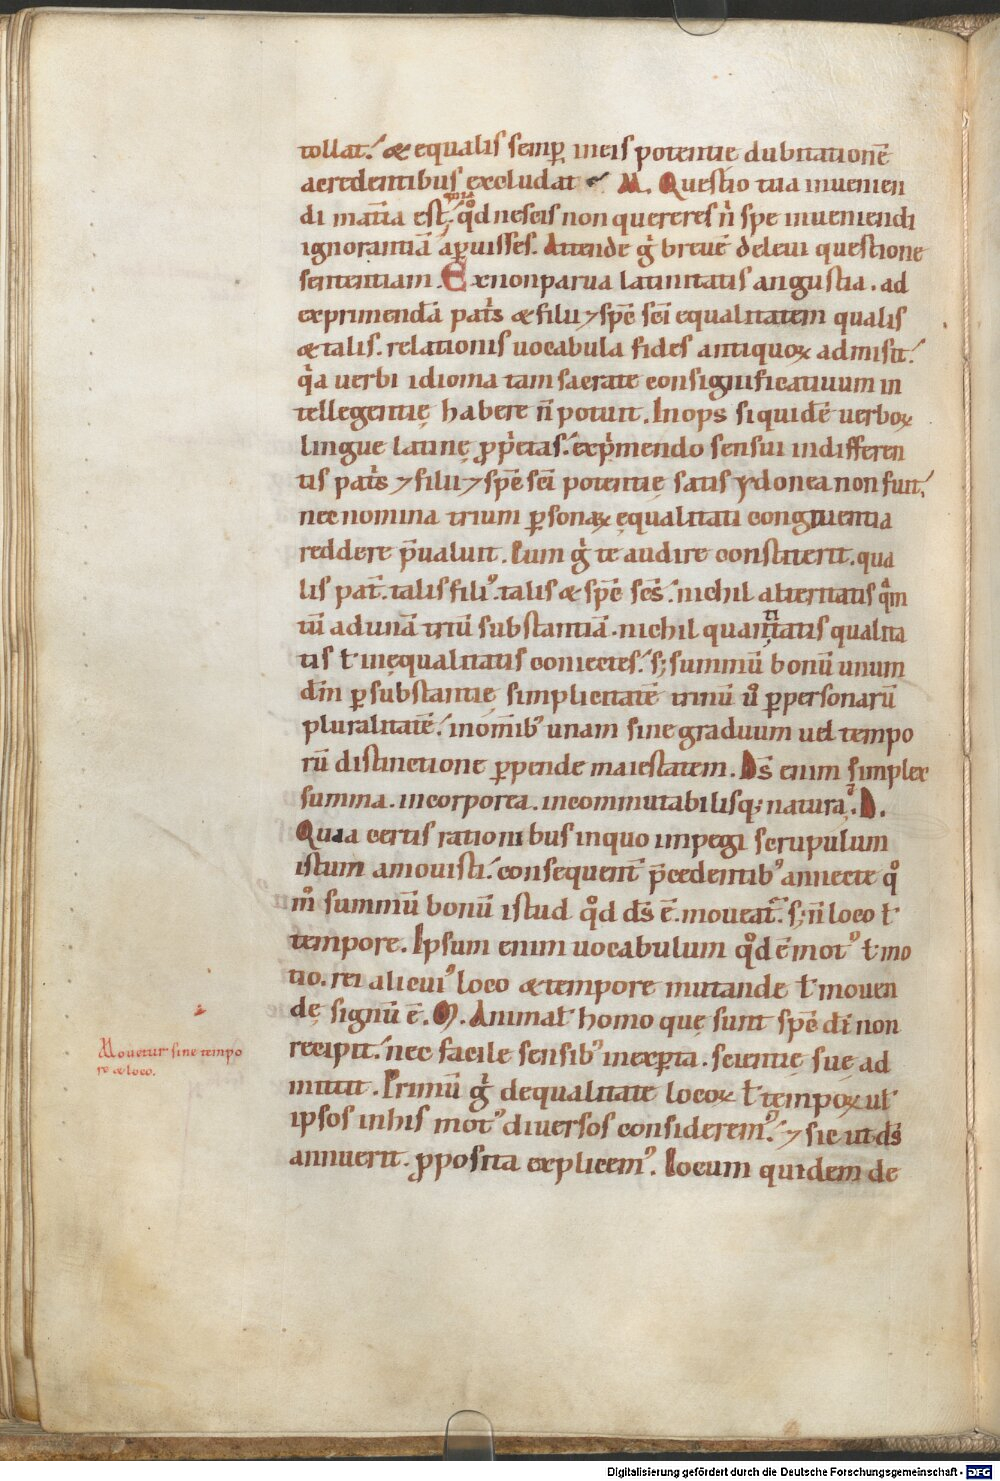 tollat. & equalis semp̱ ineis potentię dubitationē
acredentibus excludat M. Questio tua inuenien
di mat̄ia est, qͦd nescis non quereres n̄ spe inueniendi
ignorantiā ap̱uisses. Attende gͥ breuē deleui questione
sententiam. Exnonparua latinitatis angustia. ad
exprimendā pat̄s & filii ⁊ sp̄c sc̄i equalitatem qualis
& talis. relationis uocabula fides antiquoꝝ admisit.
qͥa uerbi idioma tam sacrate consignificatiuum in
tellegentię habere n̄ potuit. Inops siquidē uerboꝝ
lingue latinę ꝓpͥetas. exp̱mendo sensui indifferen
tis pat̄s ⁊ filii ⁊ sp̄c sc̄i potentię satis ydonea non fuit.
nec nomina trium p̱sonaꝝ ęqualitati congruentia
reddere p̄ualuit. Cum gͥ te audire constiterit. qua
lis pat̄. talis filiꝰ. talis & sp̄c sc̄s. nichil alternatis qͣm
tū ad unā triū substantiā. nichil quantitatis qualita
tis ł inęqualitatis coniectes. s; summū bonū unum
dm̄ p̱ substantię simplicitatē trinū uͦ p̱personarū
pluralitatē. inom̄ibꝰ unam sine graduum uel tempo
rū distinctione p̱pende maiestatem. Ds̄ enim simplex
summa. incorporea. incommutabilisq; natura. D.
Quia certis rationibus inquo impegi scrupulum
istum amouisti. consequent̄ p̄cedentibꝰ annecte qͦ
mͦ summū bonū istud qͦd ds̄ ē. moueat᷑. s; n̄ loco ł
tempore. Ipsum enim uocabulum qͦd ē motꝰ ł mo
tio. rei alicuiꝰ loco & tempore mutande ł mouen
dę signū ē. M. Animal homo quę sunt sp̄c di non
recipit. nec facile sensibꝰ inexp̱ta. scientię suę ad
mittit. Primū gͥ dequalitate locoꝝ ł tempoꝝ ul
ipsos inhis motꝰ diuersos consideremꝰ. ⁊ sic ut ds̄
annuerit. ꝓposita explicemꝰ. Locum quidem de
Mouetur sine tempo
re & loco.
Digitalisierung gefördert durch die Deutsche Forschungsgemeinschaft - DFG